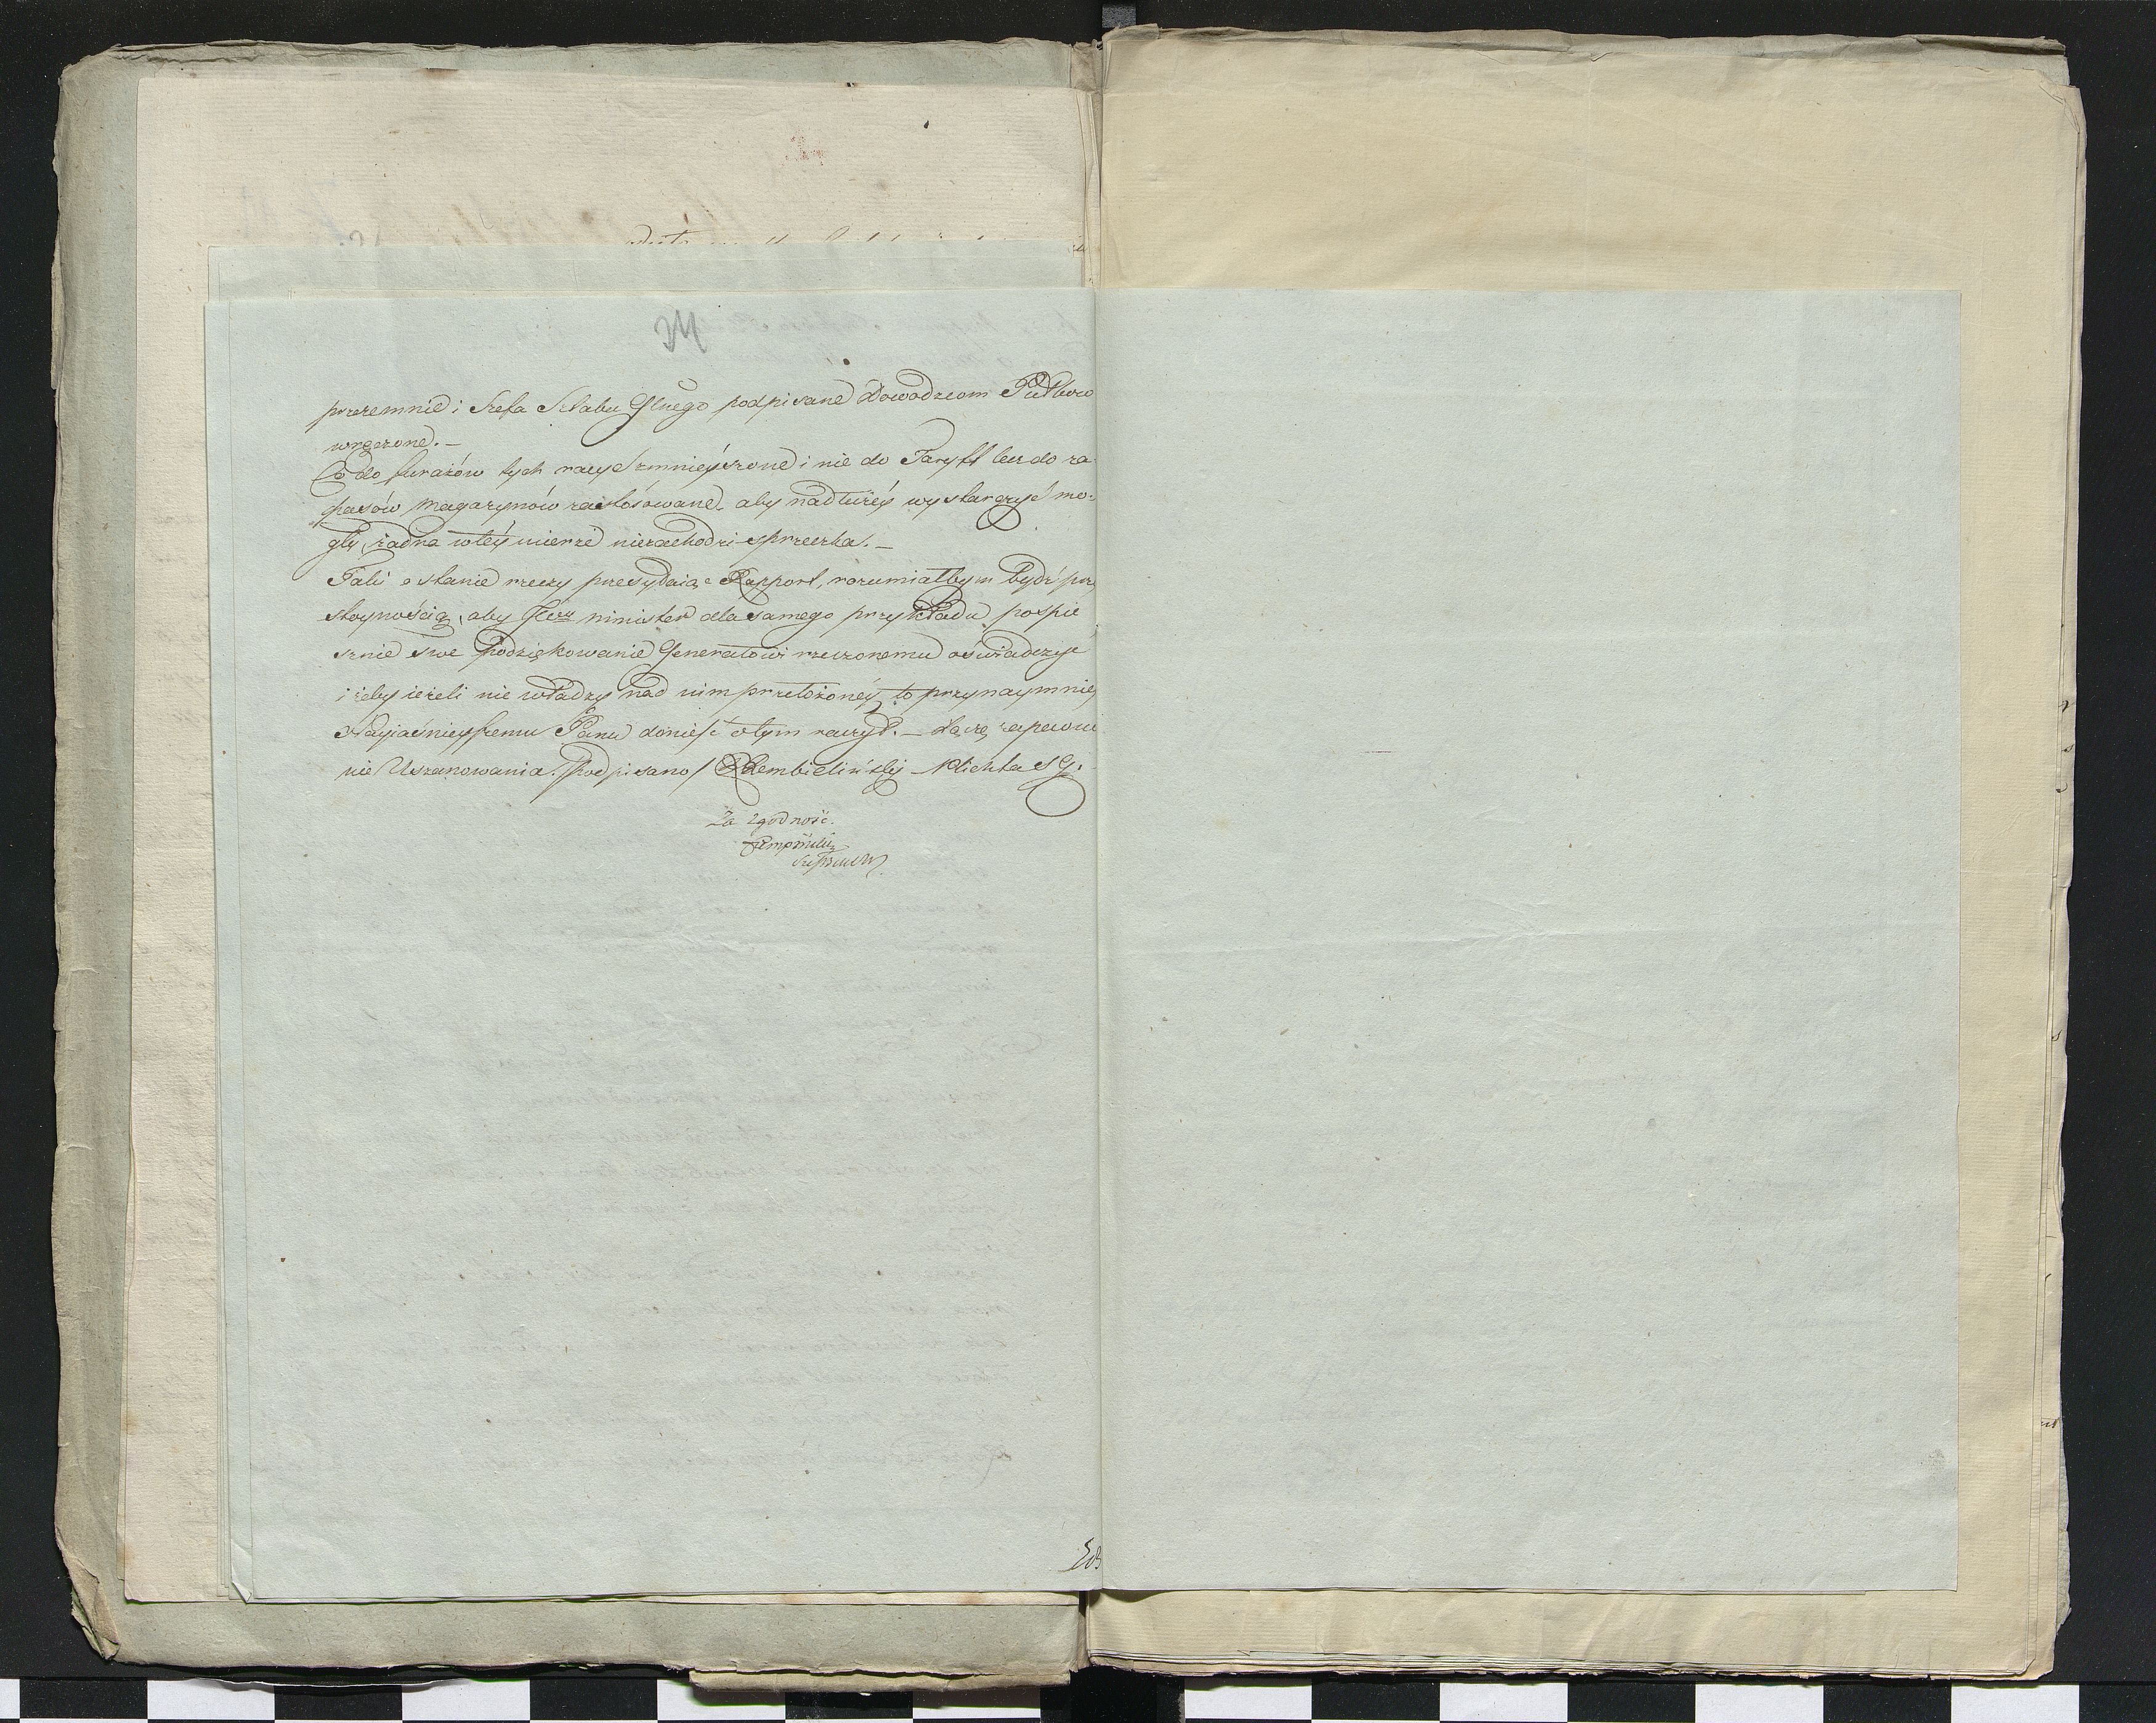 przezemnie i Szefa Sztabu Głnego podpisane Dowodzcom Pułkow
wręczone. —
Co do furażów tych racye zmnieyszone i nie do Taryff lecz do za-
pasów magazynów zastósowane, aby nadłużéy wystarczyć mo-
gły, żadna w téy mierze niezachodzi sprzeczka. —
Taki o stanie rzeczy przesyłaiąc Rapport, rozumiałbym bydź przy
stoynością, aby minister dla samego przykładu pospie
sznie swe podziękowanie Generałowi rzeczonemu oświadczyć
i żeby ieżeli nie władzy nad nim przełożonéy, to przynaymniey
Nayiaśnieyszemu Panu donieść o tym raczył. — Łączę zapewnie
nie Uszanowania. /podpisano/ Rembieliński Michta SG.
Za zgodność.